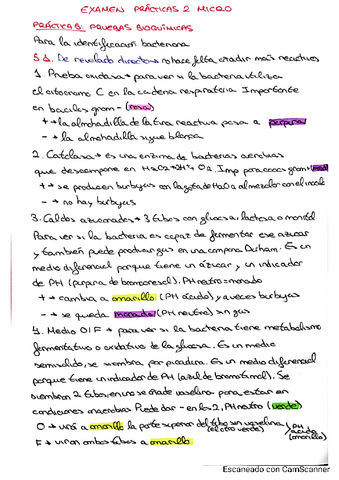 EXAMEN PRÁCTICAS 2 MICRO
PRÁCTICA 5: PRUEBAS BIOQUÍMICAS
Para la identificación bacteriana
5.1. De revelado directo → no hace falta añadir más reactivos
1. Prueba oxidasa → para ver si la bacteria utiliza
el citocromo C en la cadena respiratoria. Importante
en bacilos gram - (rosa)
+ → la almohadilla de la tira reactiva pasa a púrpura
- → la almohadilla sigue blanca
2. Catalasa → es una enzima de bacterias aerobias
que descompone en H2O2 → H2O + O2. Imp para cocos gram +
+ → se producen burbujas con la gota de H2O2 al mezclar con el inóculo
- → no hay burbujas
3. Caldos azucarados → 3 tubos con glucosa, lactosa o manitol
Para ver si la bacteria es capaz de fermentar ese azúcar
y también puede producir gas en una campana Durham. Es un
medio diferencial porque tiene un azúcar y un indicador
de PH (púrpura de bromocresol). PH neutro = morado
+ → cambia a amarillo (PH ácido) y a veces burbujas
- → se queda morado (PH neutro) sin gas
4. Medio O/F → para ver si la bacteria tiene metabolismo
fermentativo o oxidativo de la glucosa. Es un medio
semisólido, se siembra por picadura. Es un medio diferencial
porque tiene un indicador de PH (azul de bromotimol). Se
siembran 2 tubos, en uno se añade vaselina para estar en
condiciones anaerobias. Puede dar - en los 2, PH neutro (verde)
O → vira a amarillo la parte superior del tubo sin vaselina (el otro verde)
F → viran ambos tubos a amarillo
PH ácido (amarillo)
Escaneado con CamScanner